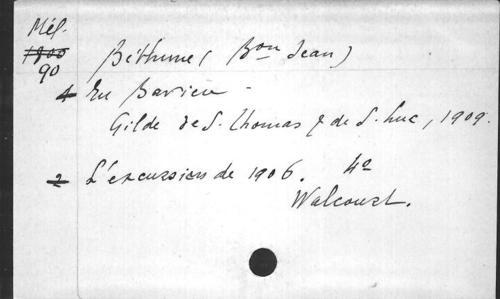 Mél.
1800
90
Béthune (Bon Jean)
4 En Bavière -
Gilde de S. Thomas & de S. Luc, 1909.
2 L'excursion de 1906. 4o
Walcourt.